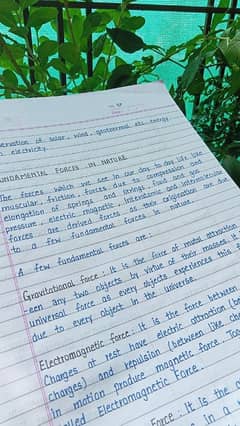 servation of solar, wind, geothermal etc. energy.
electricity.
NDAMENTAL FORCES IN NATURE
The forces which we see in our day to day life like
muscular, friction, forces due to compression and
elongation of springs and strings, fluid and gas
pressure, electric, magnetic, interatomic and intermolecular
forces are derived forces as their originations are due
to a few fundamental forces in nature.
A few fundamental forces are :
Gravitational force : It is the force of mutual attraction
-een any two objects by virtue of their masses. It
universal force as every objects experiences this
due to every object in the universe.
Electromagnetic force : It is the force between
Charges at rest have electric attraction (be
charges) and repulsion (between like char
in motion produce magnetic force. Toge
lled Electromagnetic Force.
Force : It is the
s in a